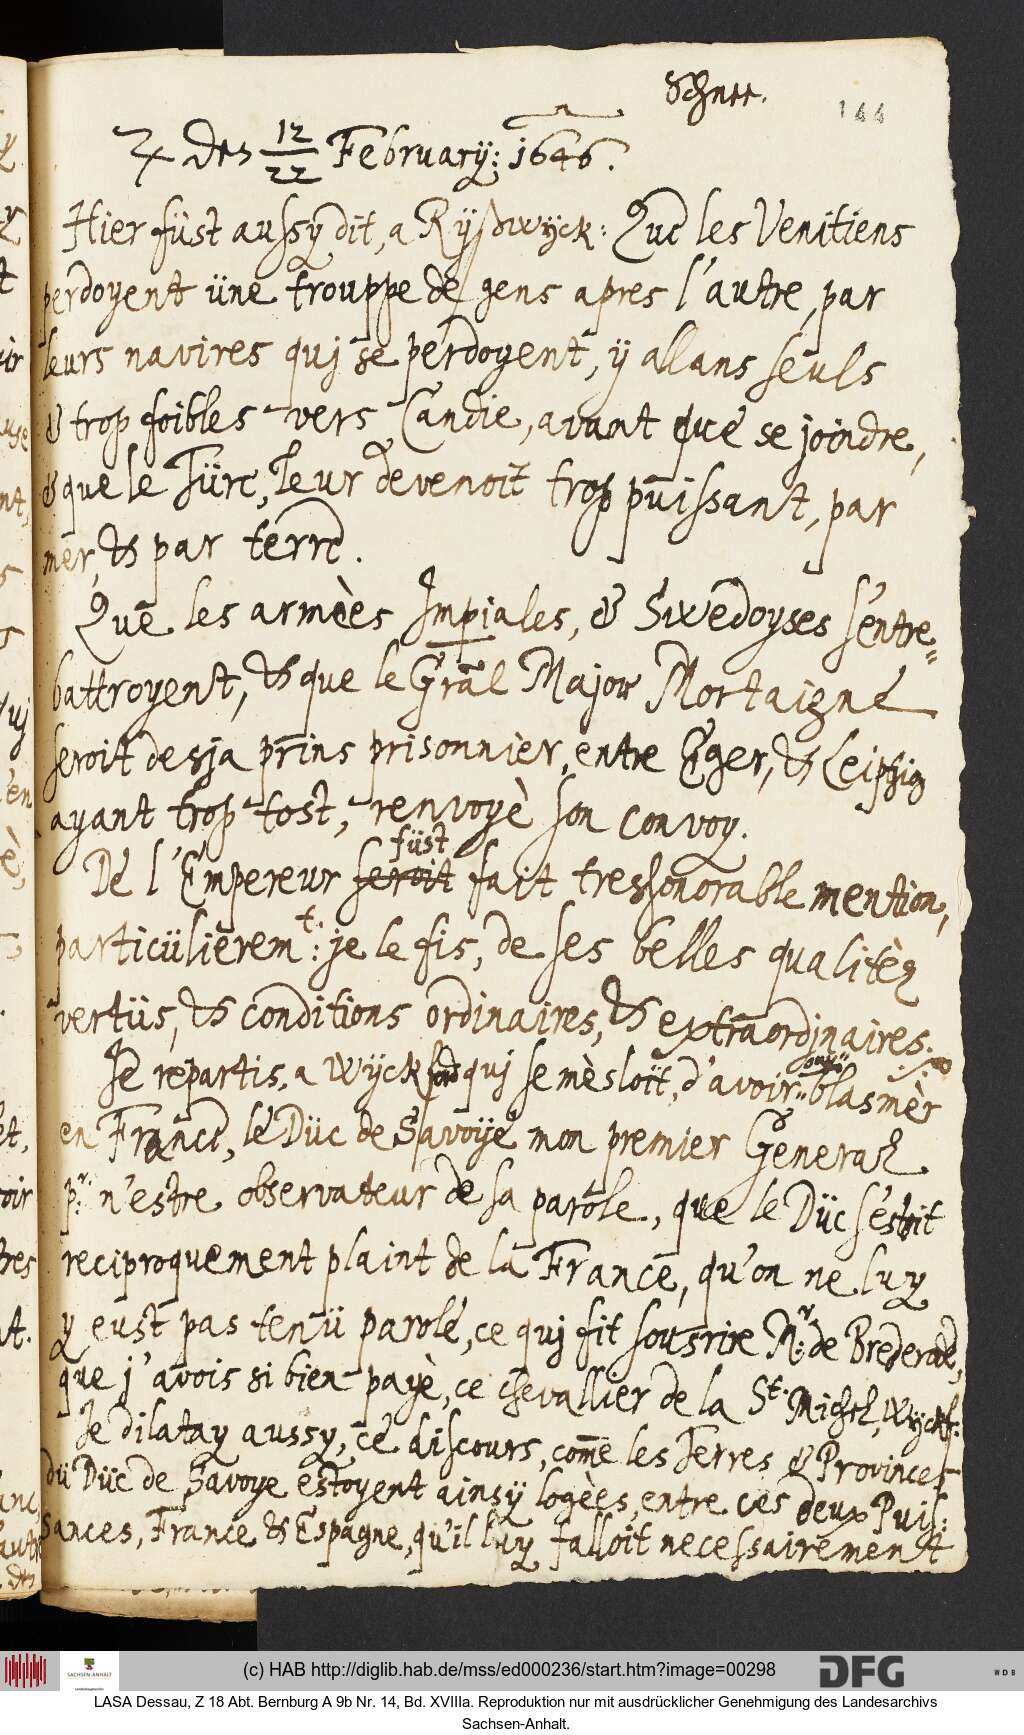 Schnee.
144
♃ den 12/22 February: 1646.
Hier füst aussy dit, a Ryßwyck: Que les Venitiens
perdoyent üne trouppe de gens apres l'autre, par
leurs navires quj se perdoyent, ÿ allans seuls
& trop foibles vers Candie, avant que se joindre,
& que le Türc, leur devenoit trop puissant, par
mer, & par terre.
Que les armèes Imp̲iales, & Swedoyses s'entre-
battroyent, & que le Gral Major Mortaigne
seroit desja prins prisonnier, entre Eger, & Leipzig
ayant trop tost, renvoyè son convoy.
De l'Empereur seroit füst fait tressonorable mention,
particülierem:t je le fis, de ses belles qualitèz
vertüs, & conditions ordinaires, & extraordinaires.
Je repartis, a Wÿckfort quj se mèsloit, d'avoir ouy blasmèr
en France, le Düc de Savoye mon premier General
p:r n'estre observateur de sa parole, que le Düc s'estoit
reciproquement plaint de la France, qu'on ne luy
y eust pas tenü parole, ce quj fit sousrire M:r de Brederode,
que j'avois si bien payè, ce chevallier de la St: Michel, Wyckf:
Je dilatay aussy, ce discours, com̄e les Terres & Provinces
dü Düc de Savoye estoyent ainsÿ logèes, entre ces deux Puis-
sances, France & Espagne, qu'il luy falloit necessairement
(c) HAB http://diglib.hab.de/mss/ed000236/start.htm?image=00298
SACHSEN-ANHALT
DFG
WDB
LASA Dessau, Z 18 Abt. Bernburg A 9b Nr. 14, Bd. XVIIIa. Reproduktion nur mit ausdrücklicher Genehmigung des Landesarchivs
Sachsen-Anhalt.